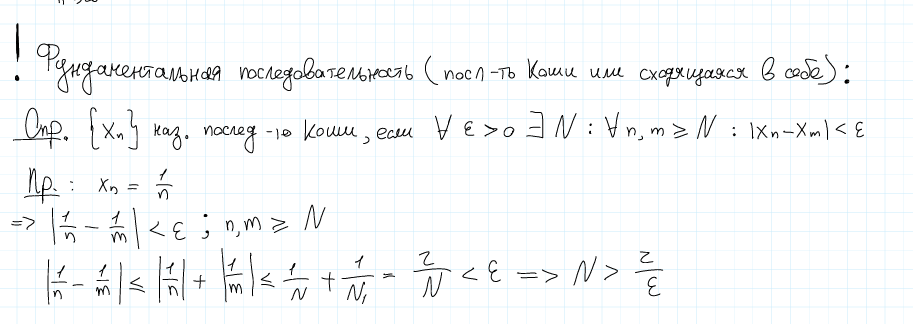 ! Фундаментальная последовательность (посл-ть Коши или сходящаяся в себе):
Опр. {xₙ} наз. послед-ю Коши, если ∀ ε > 0 ∃ N : ∀ n, m ≥ N : |xₙ - xₘ| < ε
Пр.: xₙ = 1/n
=> |1/n - 1/m| < ε ; n, m ≥ N
|1/n - 1/m| ≤ |1/n| + |1/m| ≤ 1/N + 1/N = 2/N < ε => N > 2/ε